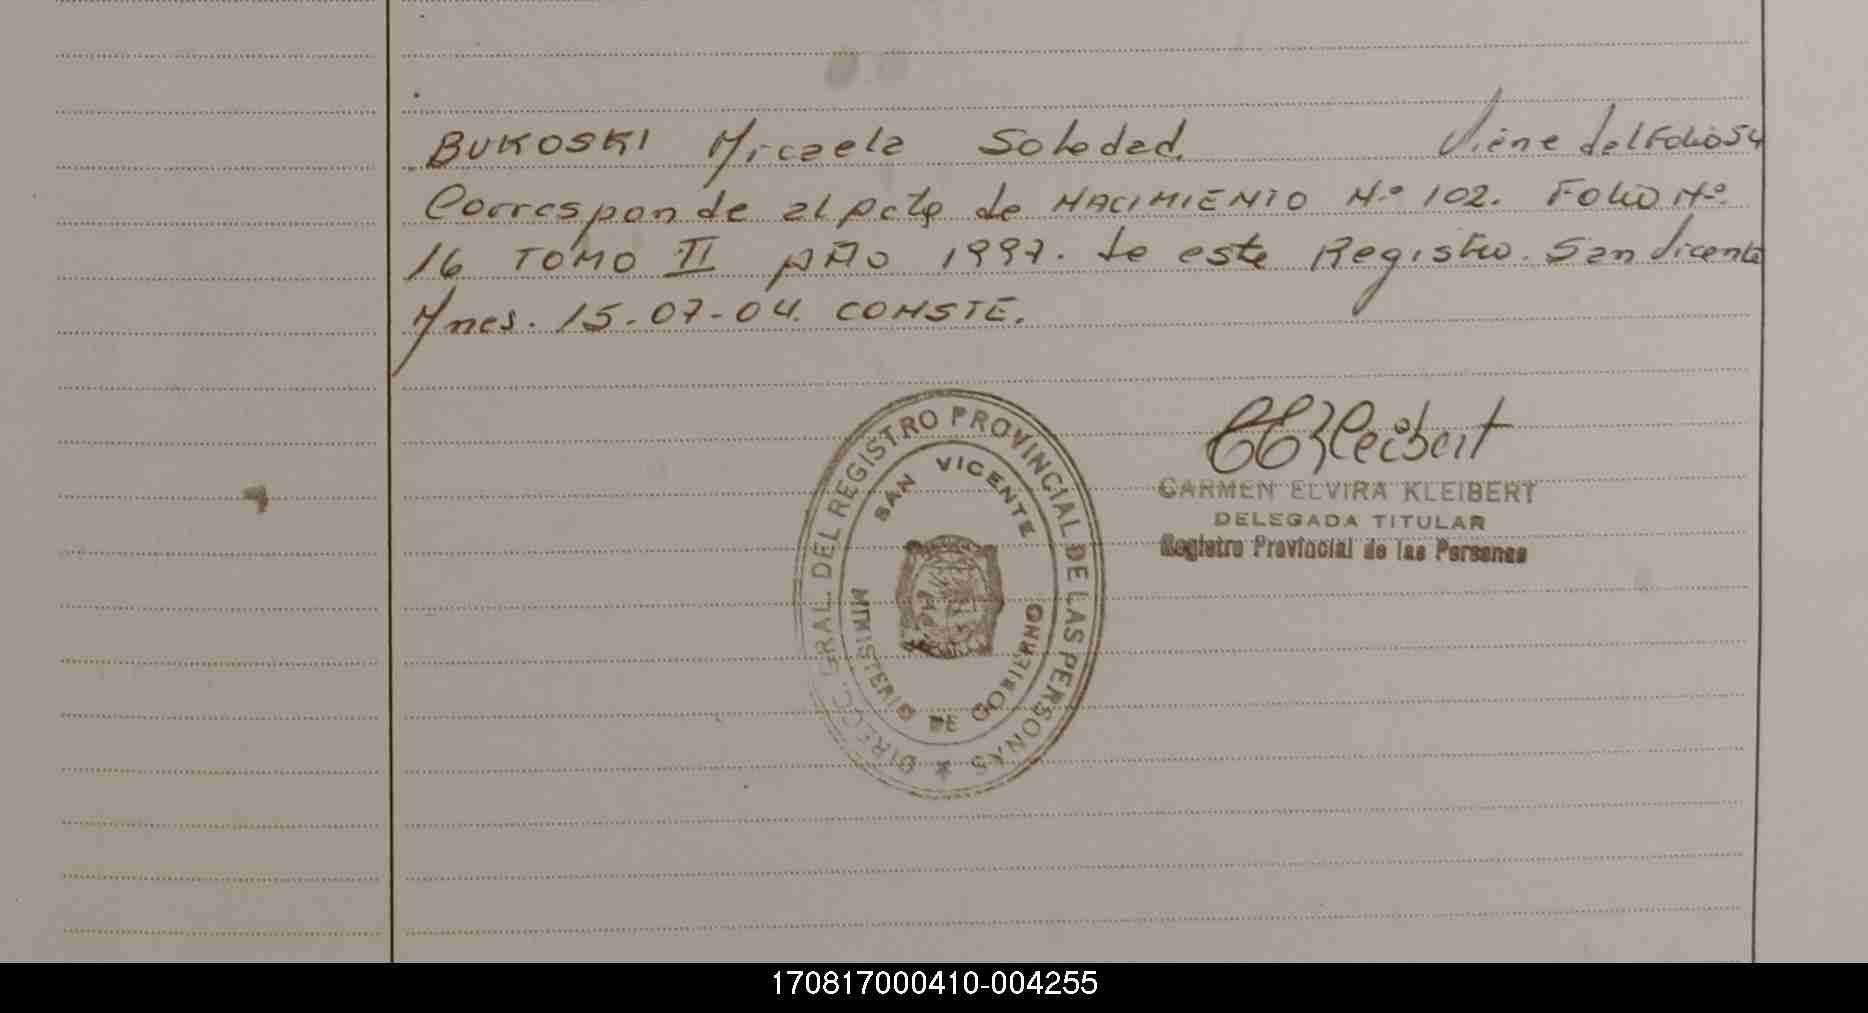 BUKOSKI Micaela Soledad. Viene del Folio 54
Corresponde al Acta de NACIMIENTO N.º 102. FOLIO Nº.
16 TOMO II AÑO 1997. de este Registro. San Vicente
Mnes. 15-07-04. CONSTE.
CEKleibert
CARMEN ELVIRA KLEIBERT
DELEGADA TITULAR
Registro Provincial de las Personas
DIRECC. GRAL. DEL REGISTRO PROVINCIAL DE LAS PERSONAS
SAN VICENTE
MINISTERIO DE GOBIERNO
170817000410-004255